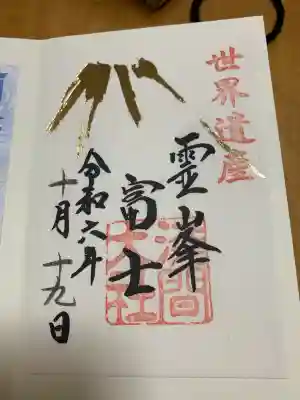 世界遺産
霊峯
富士
浅間大社
令和六年
十月十九日